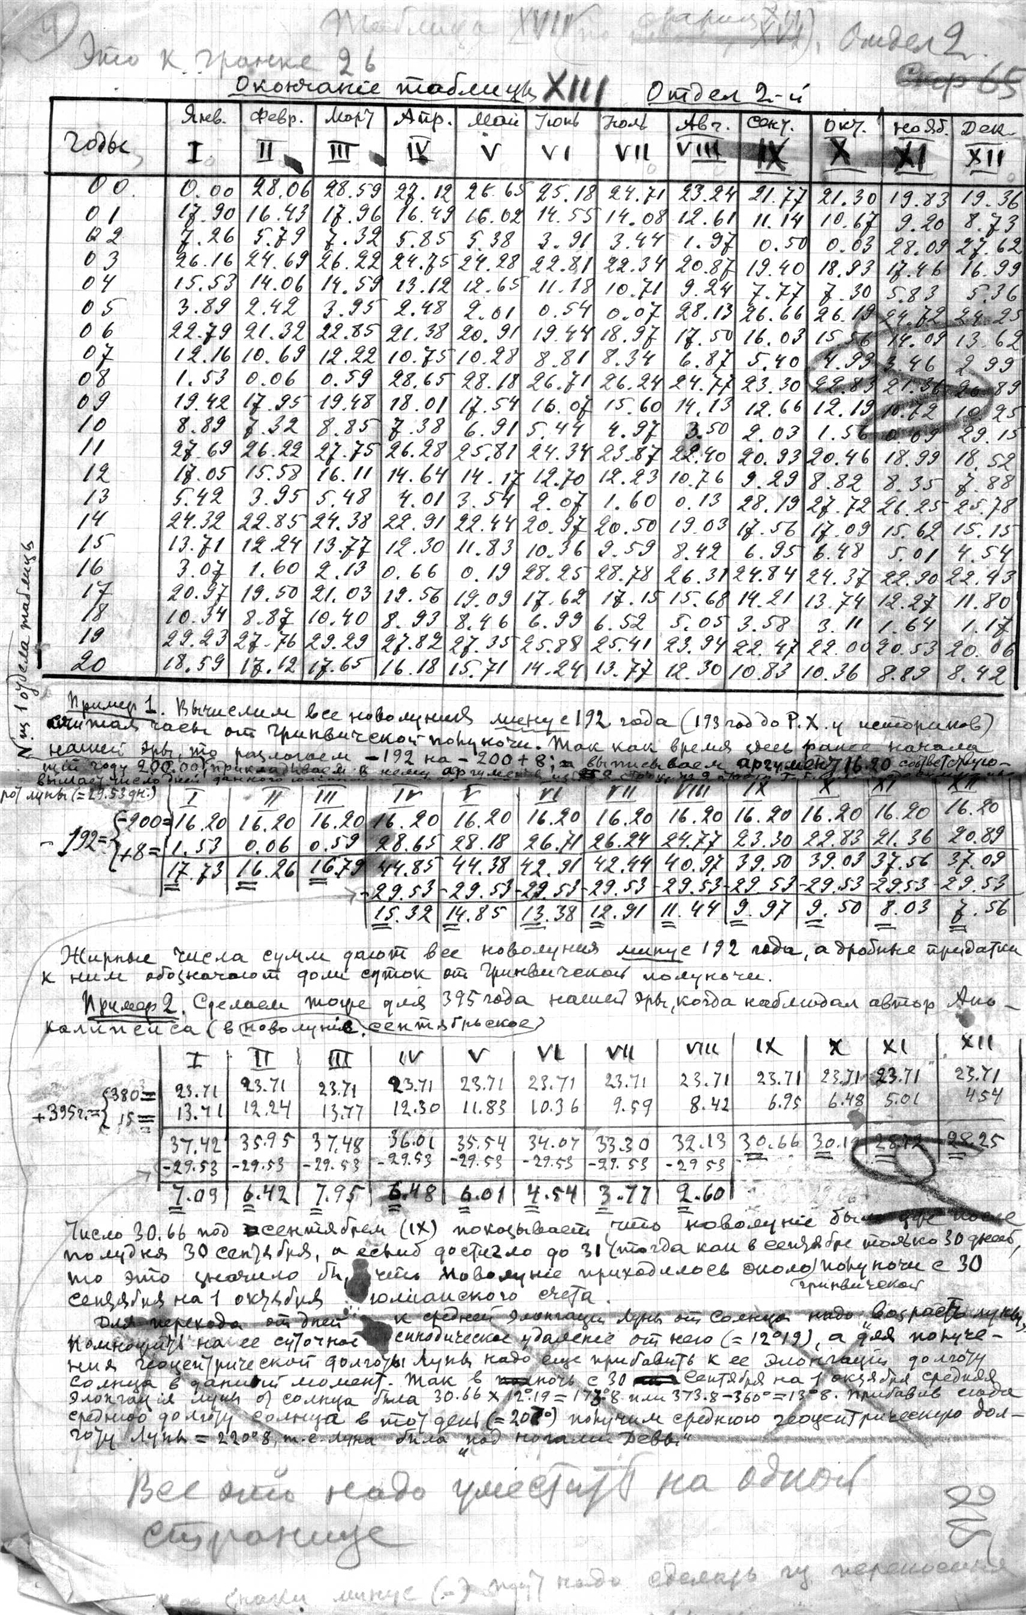 Таблица XVII Отдел 2.
Это к гранке 26
Стр 65
Окончаніе таблицы XIII Отдел 2-й
Годы, Янв. Февр. Март Апр. Май Іюнь Іюль Авг. Сент. Окт. Нояб. Дек.
I II III IV V VI VII VIII IX X XI XII
00 0.00 28.06 28.59 27.12 26.65 25.18 24.71 23.24 21.77 21.30 19.83 19.36
01 17.90 16.43 17.96 16.49 16.02 14.55 14.08 12.61 11.14 10.67 9.20 8.73
02 7.26 5.79 7.32 5.85 5.38 3.91 3.44 1.97 0.50 0.03 28.09 27.62
03 26.16 24.69 26.22 24.75 24.28 22.81 22.34 20.87 19.40 18.93 17.46 16.99
04 15.53 14.06 14.59 13.12 12.65 11.18 10.71 9.24 7.77 7.30 5.83 5.36
05 3.89 2.42 3.95 2.48 2.01 0.54 0.07 28.13 26.66 26.19 24.72 24.25
06 22.79 21.32 22.85 21.38 20.91 19.44 18.97 17.50 16.03 15.56 14.09 13.62
07 12.16 10.69 12.22 10.75 10.28 8.81 8.34 6.87 5.40 4.93 3.46 2.99
08 1.53 0.06 0.59 28.65 28.18 26.71 26.24 24.77 23.30 22.83 21.36 20.89
09 19.42 17.95 19.48 18.01 17.54 16.07 15.60 14.13 12.66 12.19 10.72 10.25
10 8.89 7.32 8.85 7.38 6.91 5.44 4.97 3.50 2.03 1.56 0.09 29.15
11 27.69 26.22 27.75 26.28 25.81 24.34 23.87 22.40 20.93 20.46 18.99 18.52
12 17.05 15.58 16.11 14.64 14.17 12.70 12.23 10.76 9.29 8.82 8.35 7.88
13 5.42 3.95 5.48 4.01 3.54 2.07 1.60 0.13 28.19 27.72 26.25 25.78
14 24.32 22.85 24.38 22.91 22.44 20.97 20.50 19.03 17.56 17.09 15.62 15.15
15 13.71 12.24 13.77 12.30 11.83 10.36 9.59 8.42 6.95 6.48 5.01 4.54
16 3.07 1.60 2.13 0.66 0.19 28.25 28.78 26.31 24.84 24.37 22.90 22.43
17 20.97 19.50 21.03 19.56 19.09 17.62 17.15 15.68 14.21 13.74 12.27 11.80
18 10.34 8.87 10.40 8.93 8.46 6.99 6.52 5.05 3.58 3.11 1.64 1.17
19 29.23 27.76 29.29 27.82 27.35 25.88 25.41 23.94 22.47 22.00 20.53 20.06
20 18.59 17.12 17.65 16.18 15.71 14.24 13.77 12.30 10.83 10.36 8.89 8.42
из 1 отдела таблицы
Пример 1. Вычислим все новолуния минус 192 года (193 год до Р.Х. у историков)
считая часы от Гринвической полуночи. Так как время здесь ранее начала
нашей эры, то разлагаем −192 на −200+8; выписываем аргумент 16.20 соответствую-
рот луны (=29.53 дн.)
I II III IV V VI VII VIII IX X XI XII
−200= 16.20 16.20 16.20 16.20 16.20 16.20 16.20 16.20 16.20 16.20 16.20 16.20
−192= +8= 1.53 0.06 0.59 28.65 28.18 26.71 26.24 24.77 23.30 22.83 21.36 20.89
17.73 16.26 16.79 44.85 44.38 42.91 42.44 40.97 39.50 39.03 37.56 37.09
-29.53 -29.53 -29.53 -29.53 -29.53 -29.53 -29.53 -29.53 -29.53
15.32 14.85 13.38 12.91 11.44 9.97 9.50 8.03 7.56
Жирные числа сумм дают все новолуния минус 192 года, а дробные придатки
к ним обозначают доли суток от Гринвической полуночи.
Пример 2. Сделаем тоже для 395 года нашей эры, когда наблюдал автор Апо-
калипсиса (в новолуніе сентябрьское)
I II III IV V VI VII VIII IX X XI XII
380= 23.71 23.71 23.71 23.71 23.71 23.71 23.71 23.71 23.71 23.71 23.71 23.71
+395г.= 15= 13.71 12.24 13.77 12.30 11.83 10.36 9.59 8.42 6.95 6.48 5.01 4.54
37.42 35.95 37.48 36.01 35.54 34.07 33.30 32.13 30.66 30.19 28.72 28.25
-29.53 -29.53 -29.53 -29.53 -29.53 -29.53 -29.53 -29.53
7.09 6.42 7.95 6.48 6.01 4.54 3.77 2.60
Число 30.66 под сентябрем (IX) показывает что новолуніе было уже после
полудня 30 сентября, а еслиб достигло до 31 (тогда как в сентябре только 30 дней),
то это значило бы, что новолуніе приходилось около полуночи с 30
Гринвической
сентября на 1 октября юлианского счета.
Для перехода от дней к средней элонгации луны от солнца надо возраст луны
помножить на ее суточное синодическое удаление от него (=12°19), а для получе-
ния геоцентрической долготы Луны надо еще прибавить к ее элонгации долготу
солнца в данный момент. Так в ночь с 30 сентября на 1 октября средняя
элонгация луны от солнца была 30.66 × 12°.19 = 373°8 или 373.8−360°=13°8. Прибавив сюда
среднюю долготу солнца в тот день (=207°) получим среднюю геоцентрическую дол-
готу Луны = 220°8, т.е. луна была „под ногами Девы"
Все это надо уместить на одной
странице
знаки минус (−) надо сделать